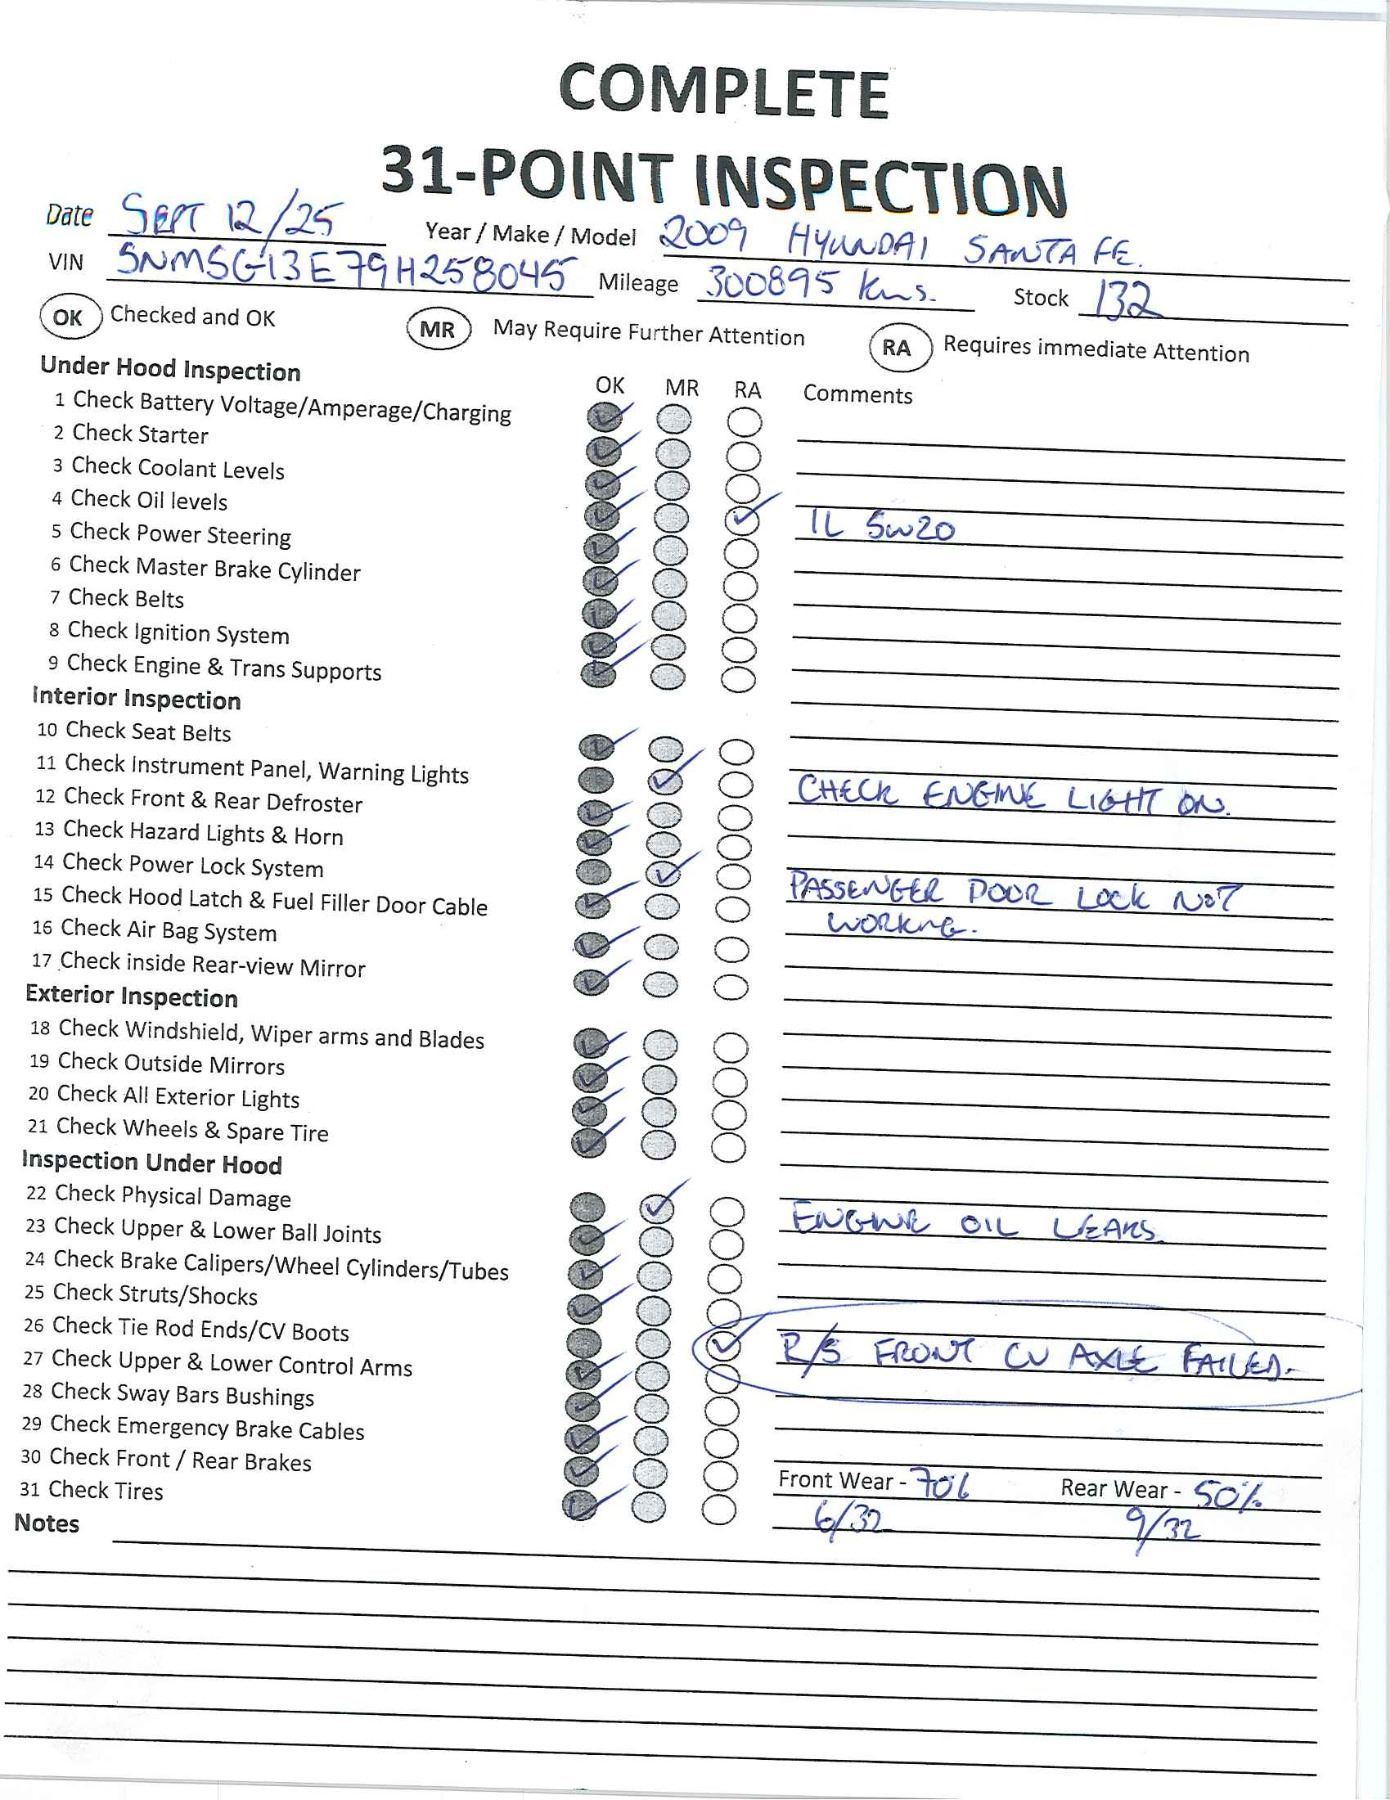 COMPLETE
31-POINT INSPECTION
Date SEPT 12/25 Year / Make / Model 2009 HYUNDAI SANTA FE.
VIN 5NMSG13E79H258045 Mileage 300895 Kms. Stock 132
OK Checked and OK MR May Require Further Attention RA Requires immediate Attention
Under Hood Inspection OK MR RA Comments
1 Check Battery Voltage/Amperage/Charging
2 Check Starter
3 Check Coolant Levels
4 Check Oil levels 1L 5W20
5 Check Power Steering
6 Check Master Brake Cylinder
7 Check Belts
8 Check Ignition System
9 Check Engine & Trans Supports
Interior Inspection
10 Check Seat Belts
11 Check Instrument Panel, Warning Lights CHECK ENGINE LIGHT ON.
12 Check Front & Rear Defroster
13 Check Hazard Lights & Horn
14 Check Power Lock System PASSENGER DOOR LOCK NOT
WORKING.
15 Check Hood Latch & Fuel Filler Door Cable
16 Check Air Bag System
17 Check inside Rear-view Mirror
Exterior Inspection
18 Check Windshield, Wiper arms and Blades
19 Check Outside Mirrors
20 Check All Exterior Lights
21 Check Wheels & Spare Tire
Inspection Under Hood
22 Check Physical Damage ENGINE OIL LEAKS.
23 Check Upper & Lower Ball Joints
24 Check Brake Calipers/Wheel Cylinders/Tubes
25 Check Struts/Shocks
26 Check Tie Rod Ends/CV Boots R/S FRONT CV AXLE FAILED.
27 Check Upper & Lower Control Arms
28 Check Sway Bars Bushings
29 Check Emergency Brake Cables
30 Check Front / Rear Brakes Front Wear - 70% Rear Wear - 50%
31 Check Tires 6/32 9/32
Notes